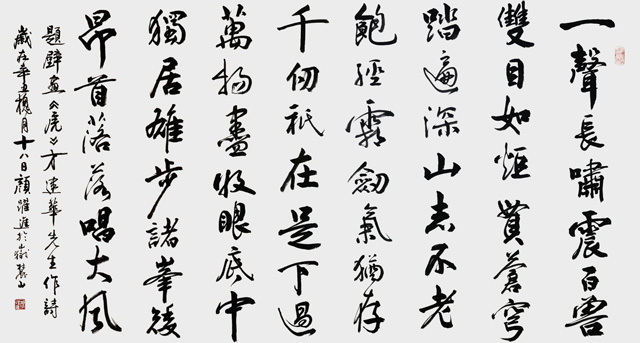 一聲長嘯震百兽
雙目如炬貫蒼穹
踏遍深山志不老
飽經霜劍氣猶存
千仞祇在足下過
萬物盡收眼底中
獨居雄步諸峯
昂首落落唱大風
題壁畫《虎》方建華先生作詩
歲在辛丑槐月十八日顏躍進於嶽麓山